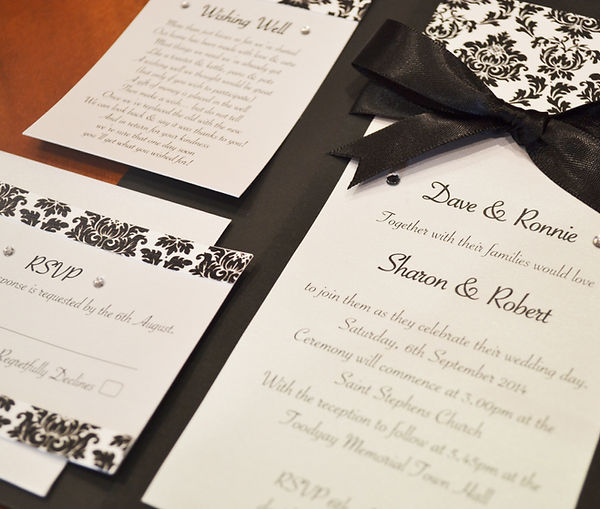 Wishing Well
More than just kisses so far we've shared
Our home has been made with love & care
Most things we need we've already got
Like a toaster & kettle, pans & pots
A wishing well we thought would be great
But only if you wish to participate!
A gift of money is placed in the well
Then make a wish - but do not tell
Once we've replaced the old with the new
We can look back & say it was thanks to you!
And in return for your kindness
we're sure that one day soon
you'll get what you wished for!
RSVP
esponse is requested by the 6th August.
Regretfully Declines
Dave & Ronnie
Together with their families would love
Sharon & Robert
to join them as they celebrate their wedding day.
Saturday, 6th September 2014
Ceremony will commence at 3.00pm at the
Saint Stephens Church
With the reception to follow at 5.45pm at the
Toodyay Memorial Town Hall
RSVP